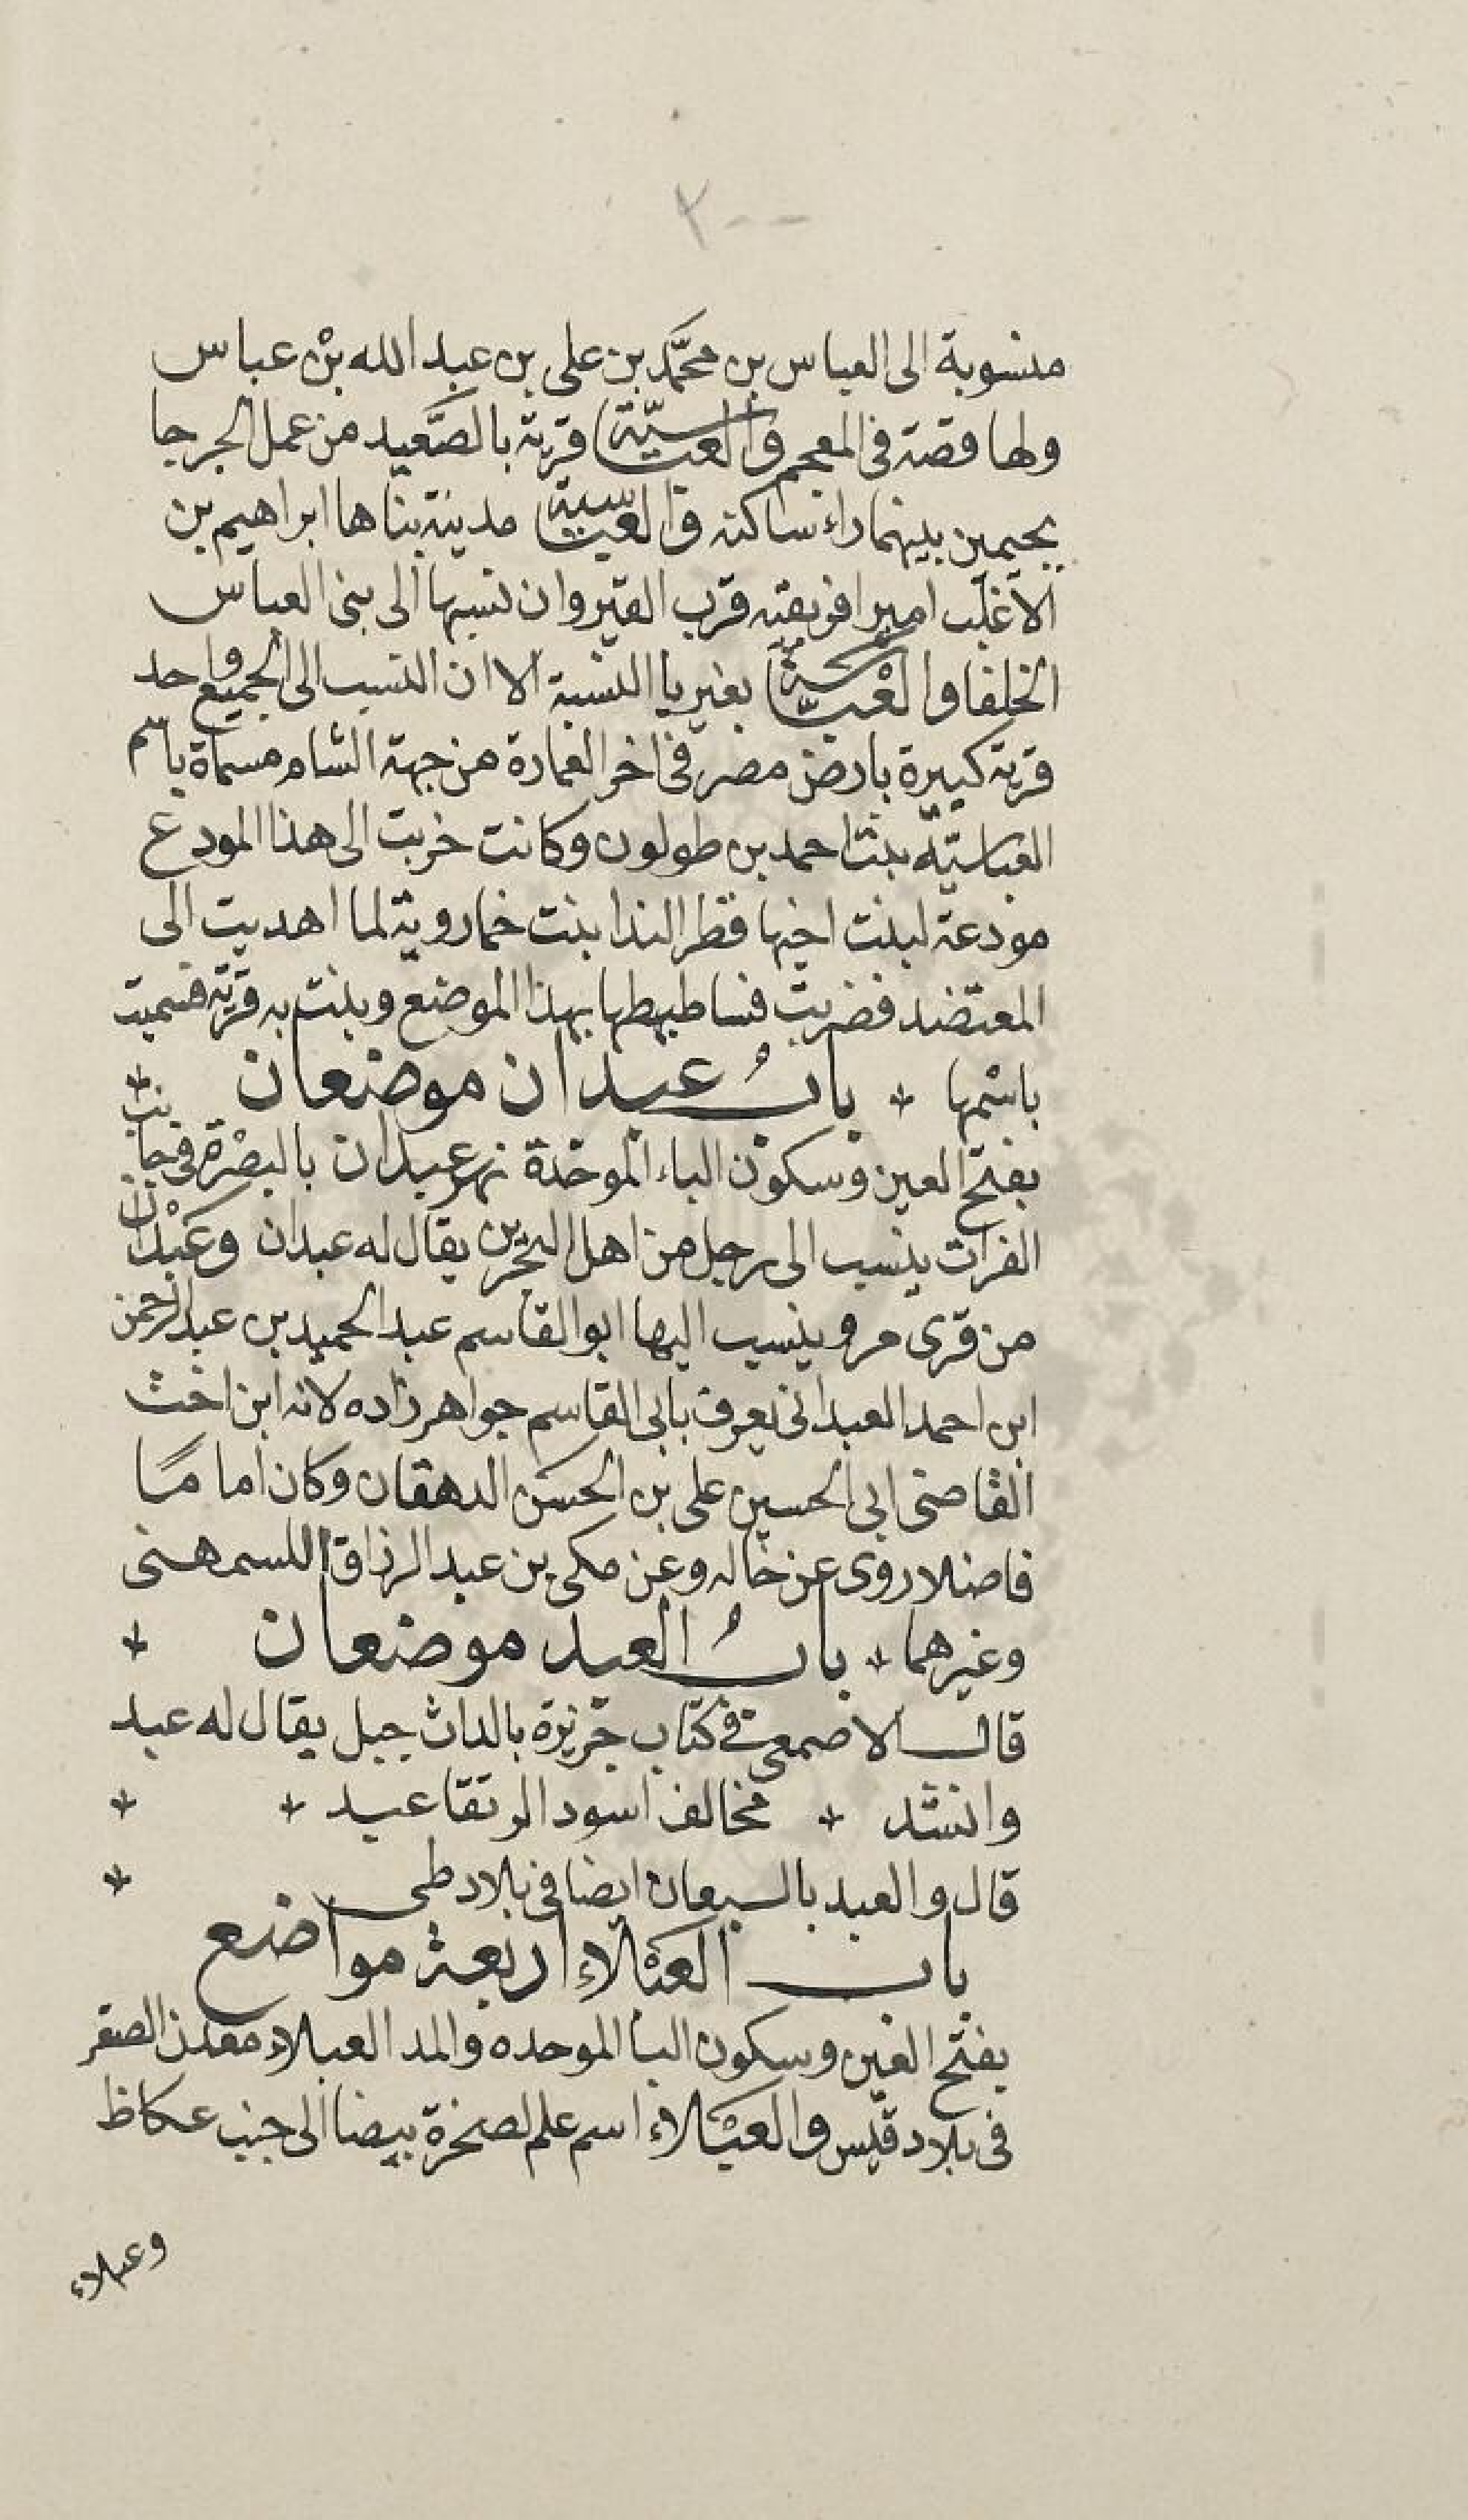 ٢٠٠
منسوبة الى العباس بن محمد بن على بن عبد الله بن عباس
ولها قصة فى المعجم والعباسيّة قرية بالصّعيد من عمل الجرجا
بجيمين بينهما راء ساكنه والعباسية مدينة بناها ابراهيم بن
الاغلب امير افريقيه قرب القيروان نسبها الى بنى العباس
الخلفا والعباسة بغير يا النسبة الا ان النسب الى الجميع واحد
قرية كبيرة بارض مصر فى اخر العمارة من جهة الشام مسماة باسم
العباسيّة بنت احمد بن طولون وكانت خربت الى هذا المودع
مودعة لبنت اخيها قطر الندا بنت خمارويه لما اهديت الى
المعتضد فضربت فساطيطها بهذا الموضع وبنت به قرية فسميت
باسمها ؞ بابُ عبدان موضعان ؞
بفتح العين وسكون الباء الموحدة نهر عبدان بالبصْرة فى جانب
الفرات ينسب الى رجل من اهل البحرين يقال له عبدان وعَبْدان
من قرى مرو ينسب اليها ابو القاسم عبد الحميد بن عبد الرحمن
ابن احمد العبدانى يعرف بابى القاسم جواهر زاده لانه ابن اخت
القاضى ابى الحسين على بن الحسن الدهقان وكان اماما
فاضلا روى عن خاله وعن مكى بن عبد الرزاق اللسمهنى
وغيرهما ؞ بابُ العبد موضعان ؞
قال الاصمعى فى كتاب جزيرة بالداث جبل يقال له عبد
وانشد ؞ مخالف اسود الرتقا عبد ؞ ؞
قال والعبد بالسبعان ايضا فى بلاد طى ؞
باب العَبْلاء اربعة مواضع
بفتح العين وسكون البا الموحده والمد العبلاء معدن الصفر
فى بلاد قيس والعَبْلاء اسم علم لصخرة بيضا الى جنب عكاظ
وعبلاء